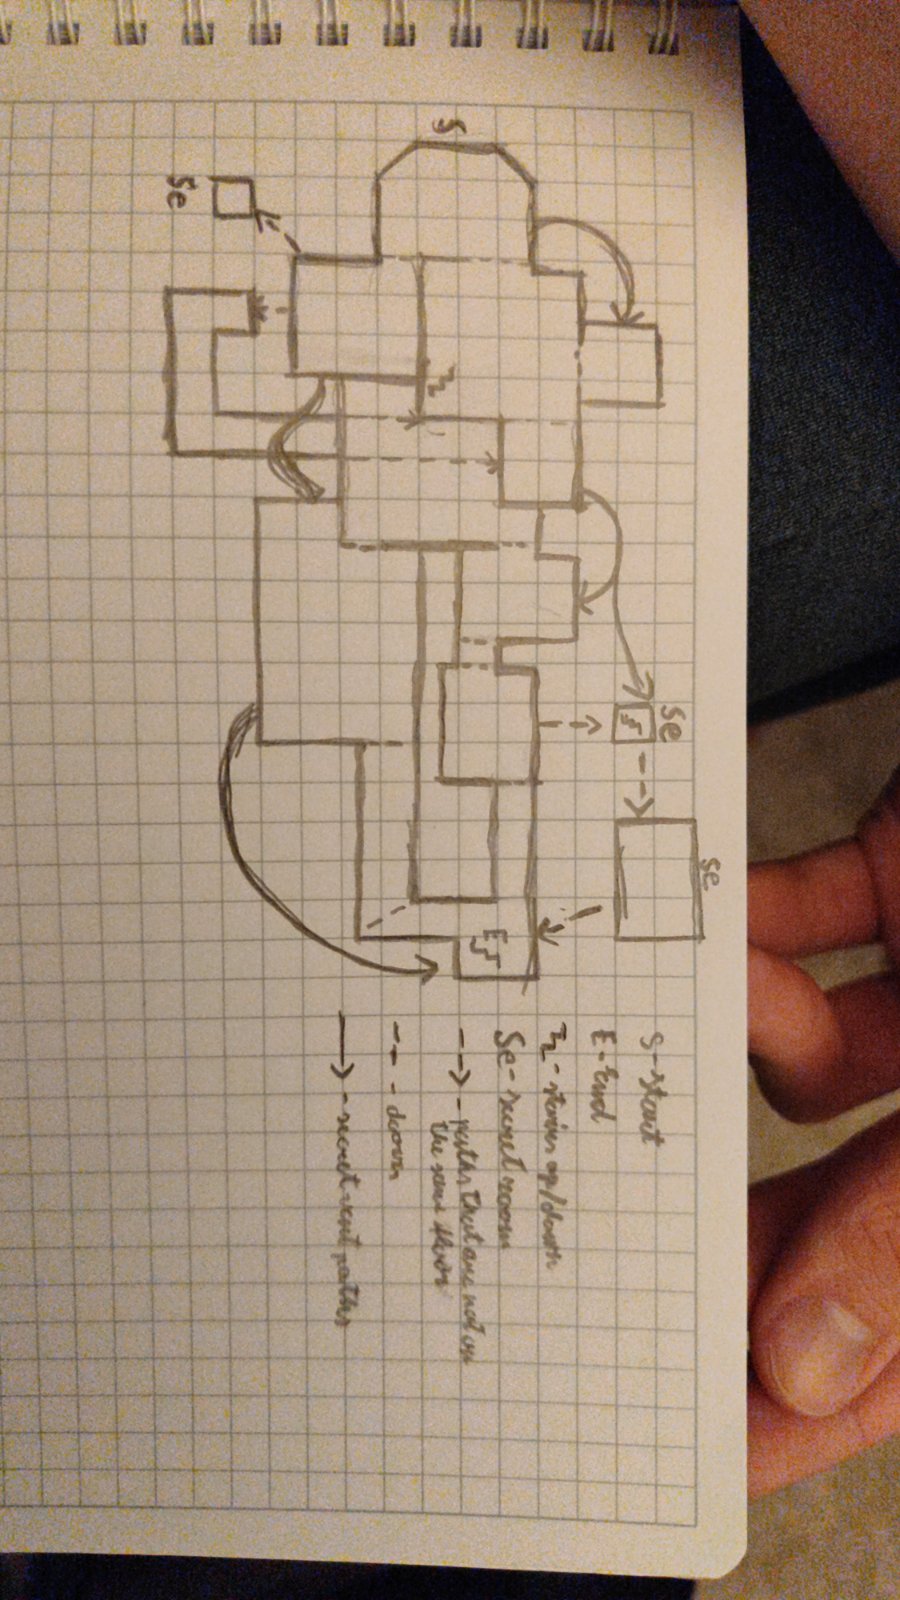 S
Se
Se
Se
E
S-start
E-End
- stairs up/down
Se- secret room
- paths that are not on
the same floor
- doors
- secret vent paths